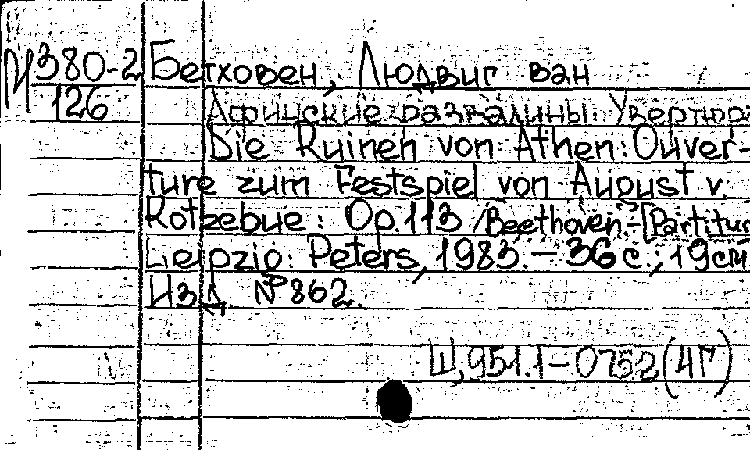 И380-2 Бетховен, Людвиг ван
126 Афинские развалины: Увертюр
Die Ruinen von Athen: Ouver-
ture zum Festspiel von August v.
Kotzebue: Op.113 / Beethoven.-[Partitur
Leipzig: Peters, 1983.- 36 с.; 19см
Изд. № 862.
Ш,951.1-0752(4Г)